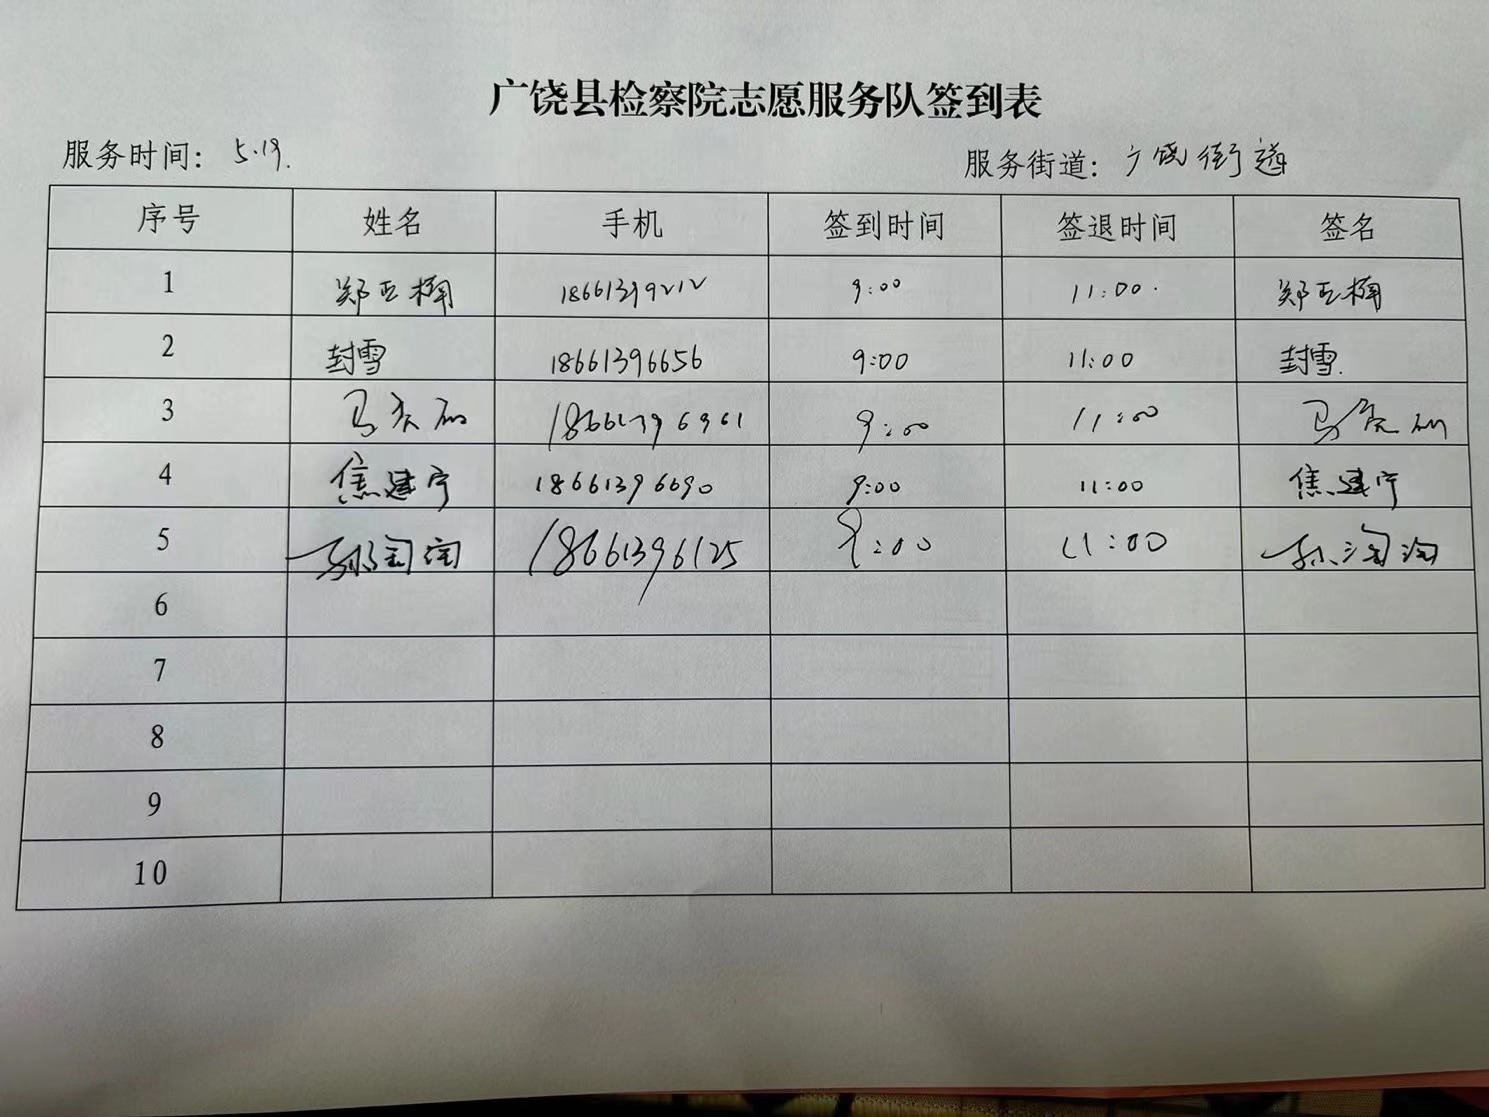 广饶县检察院志愿服务队签到表
服务时间：5.19. 服务街道：广饶街道
序号 姓名 手机 签到时间 签退时间 签名
1 郑 18661399212 9:00 11:00. 郑
2 封雪 18661396656 9:00 11:00 封雪.
3 马 18661396961 9:00 11:00 马
4 焦建宁 18661396690 9:00 11:00 焦建宁
5 孙淘淘 18661396125 9:00 11:00 孙淘淘
6
7
8
9
10